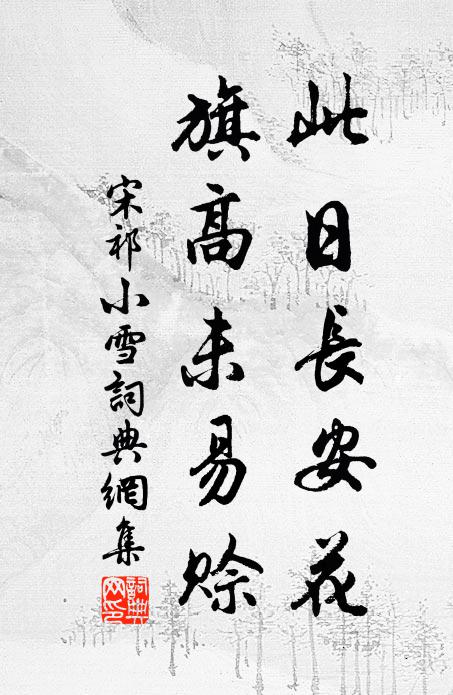 此日長安花
旗高未易賒
宋祁小雪詞典網集
詞典
网印